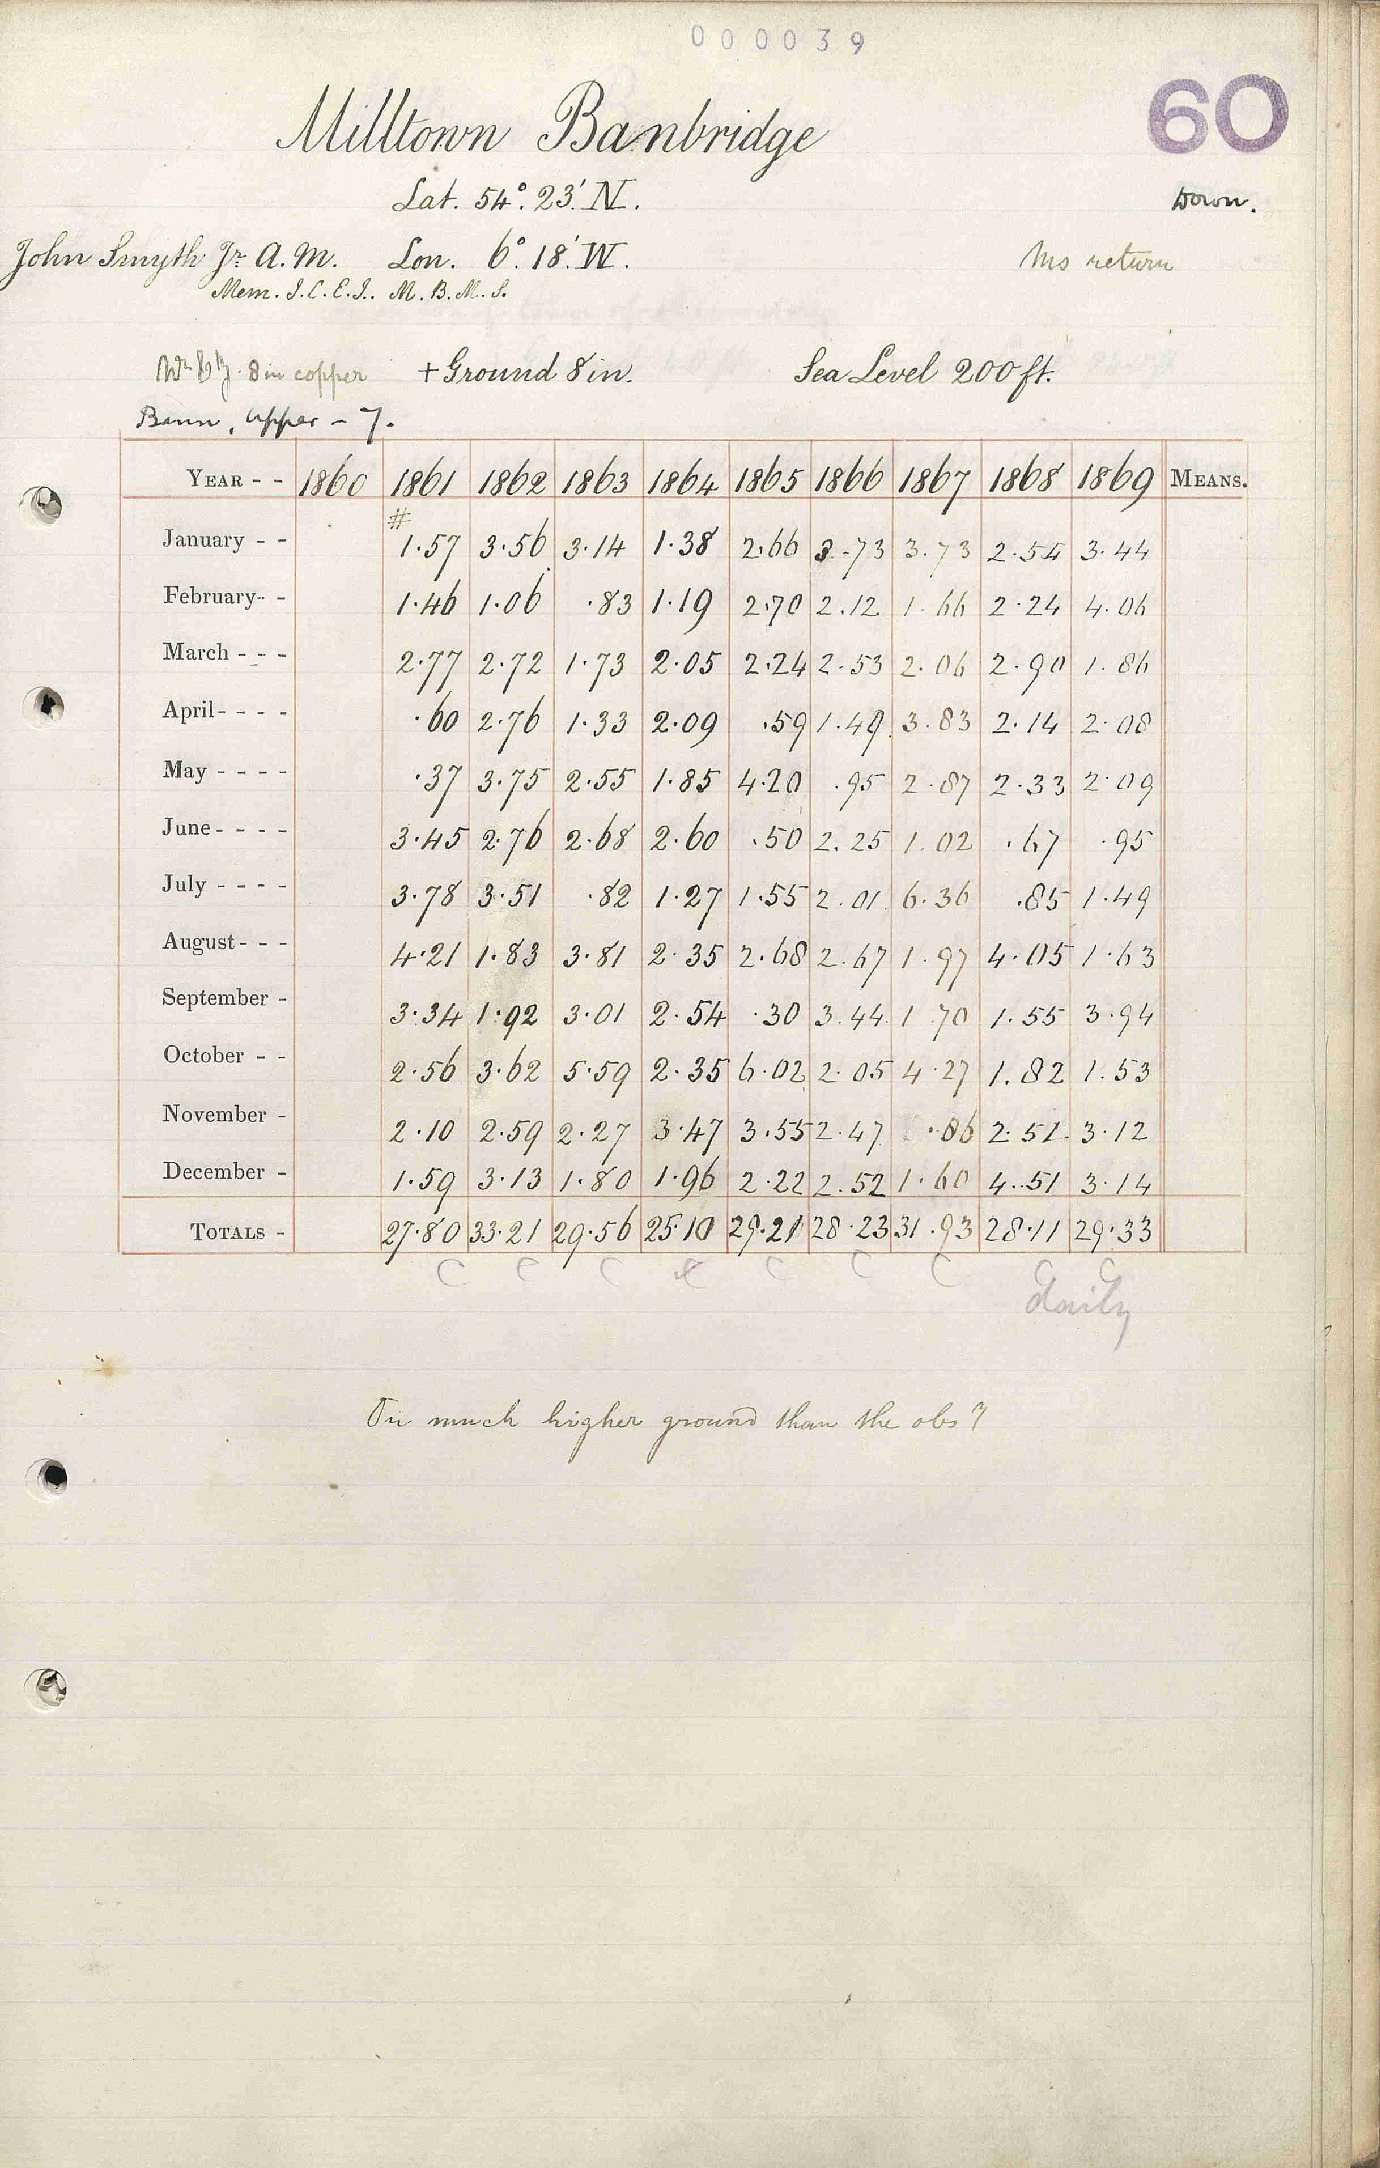 000039
60
Milltown Banbridge
Lat. 54°. 23.' N.
Down.
John Smyth Jr. A. M. Lon. 6°. 18.' W.
Ms return
Mem. I. C. E. I. M. B. M. S.
8 in copper + Ground 8 in. Sea Level 200 ft.
Bann, Upper - 7.
YEAR - - 1860 1861 1862 1863 1864 1865 1866 1867 1868 1869 MEANS.
#
January - - 1.57 3.56 3.14 1.38 2.66 3.73 3.73 2.54 3.44
February - - 1.46 1.06 .83 1.19 2.70 2.12 1.66 2.24 4.06
March - - - 2.77 2.72 1.73 2.05 2.24 2.53 2.06 2.90 1.86
April - - - - .60 2.76 1.33 2.09 .59 1.49 3.83 2.14 2.08
May - - - - .37 3.75 2.55 1.85 4.20 .95 2.87 2.33 2.09
June - - - - 3.45 2.76 2.68 2.60 .50 2.25 1.02 .67 .95
July - - - - 3.78 3.51 .82 1.27 1.55 2.01 6.36 .85 1.49
August - - - 4.21 1.83 3.81 2.35 2.68 2.67 1.97 4.05 1.63
September - 3.34 1.92 3.01 2.54 .30 3.44 1.70 1.55 3.94
October - - 2.56 3.62 5.59 2.35 6.02 2.05 4.27 1.82 1.53
November - 2.10 2.59 2.27 3.47 3.55 2.47 .86 2.51 3.12
December - 1.59 3.13 1.80 1.96 2.22 2.52 1.60 4.51 3.14
TOTALS - 27.80 33.21 29.56 25.10 29.21 28.23 31.93 28.11 29.33
C C C C C C C C
daily
On much higher ground than the obs?